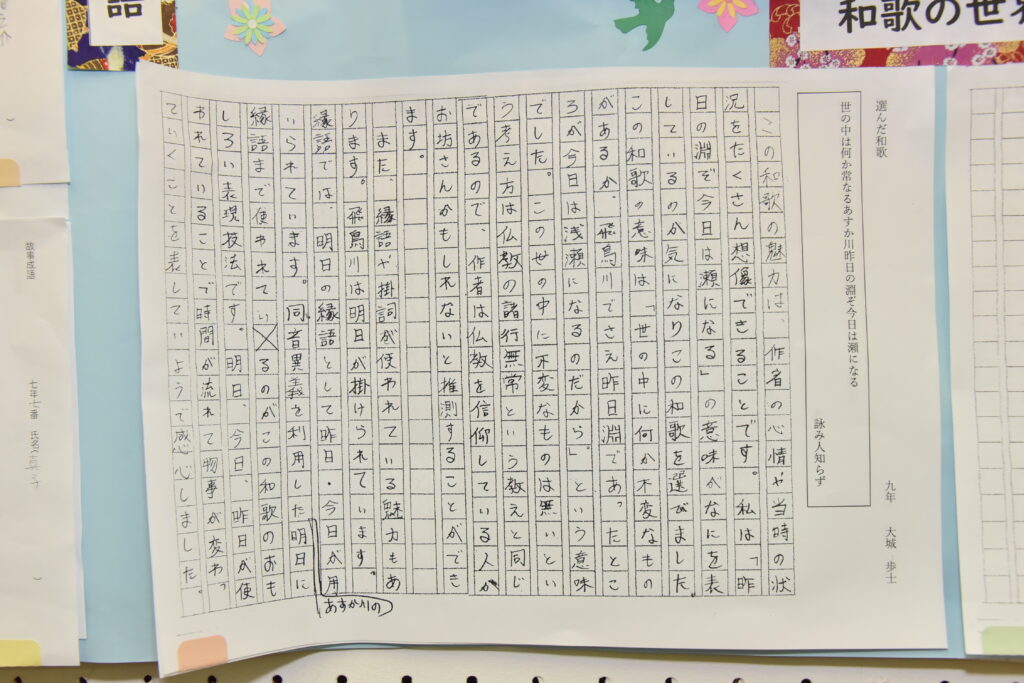 語
和歌の世
選んだ和歌
世の中は何か常なるあすか川昨日の淵ぞ今日は瀬になる
詠み人知らず
九年 大城 歩士
この和歌の魅力は、作者の心情や当時の状
況をたくさん想像できることです。私は「昨
日の淵ぞ今日は瀬になる」の意味がなにを表
しているのか気になりこの和歌を選びました。
この和歌の意味は「世の中に何か不変なもの
があるか、飛鳥川でさえ昨日淵であったとこ
ろが今日は浅瀬になるのだから」という意味
でした。この世の中に不変なものは無いとい
う考え方は仏教の諸行無常という教えと同じ
であるので、作者は仏教を信仰している人か
お坊さんかもしれないと推測することができ
ます。
また、縁語や掛詞が使われている魅力もあ
ります。飛鳥川は明日が掛けられています。
縁語では、明日の縁語として昨日・今日が用
あすか川の
いられています。同音異義を利用した明日に
縁語まで使われているのがこの和歌のおも
しろい表現技法です。明日、今日、昨日が使
われていることで時間が流れて物事が変わっ
ていくことを表していようで感心しました。
故事成語
七年七番 氏名(